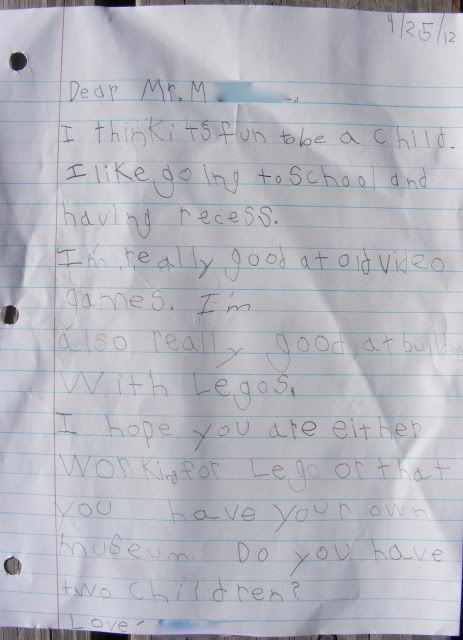 4/25/12
Dear Mr. M
I think its fun to be a child.
I like going to school and
having recess.
I'm really good at old video
games. I'm
also really good at
With Legos.
I hope you are either
Working for Lego or that
you have your own
museum. Do you have
two children?
Love